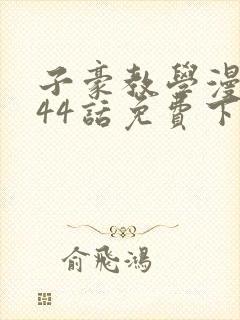 子豪教學漫
44話免費下
俞飛鴻